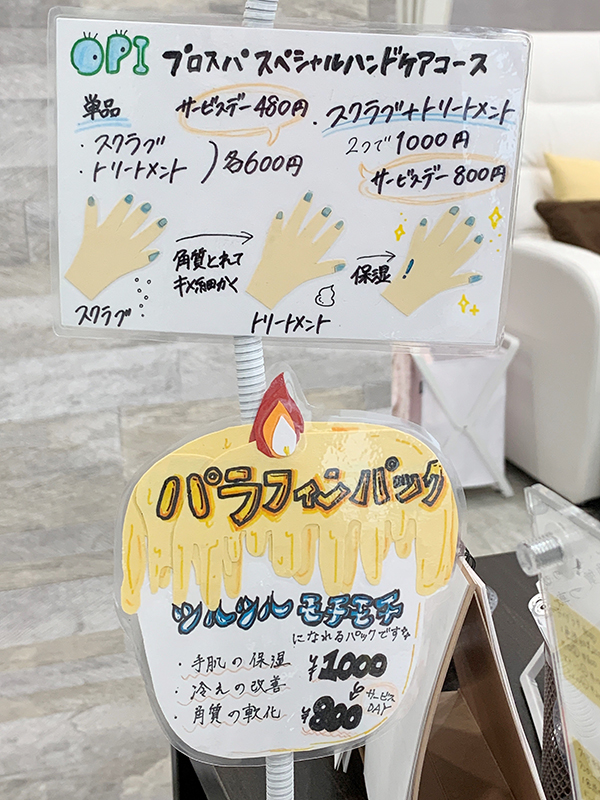 OPI プロスパ スペシャルハンドケアコース
単品
サービスデー 480円
・スクラブ
・トリートメント
) 各600円
・スクラブ+トリートメント
2つで1000円
サービスデー 800円
角質とれて
キメ細かく
保湿
スクラブ
トリートメント
パラフィンパック
ツルツル モチモチ
になれるパックです☆
・手肌の保湿
・冷えの改善
・角質の軟化
¥1000
サービス
DAY
¥800